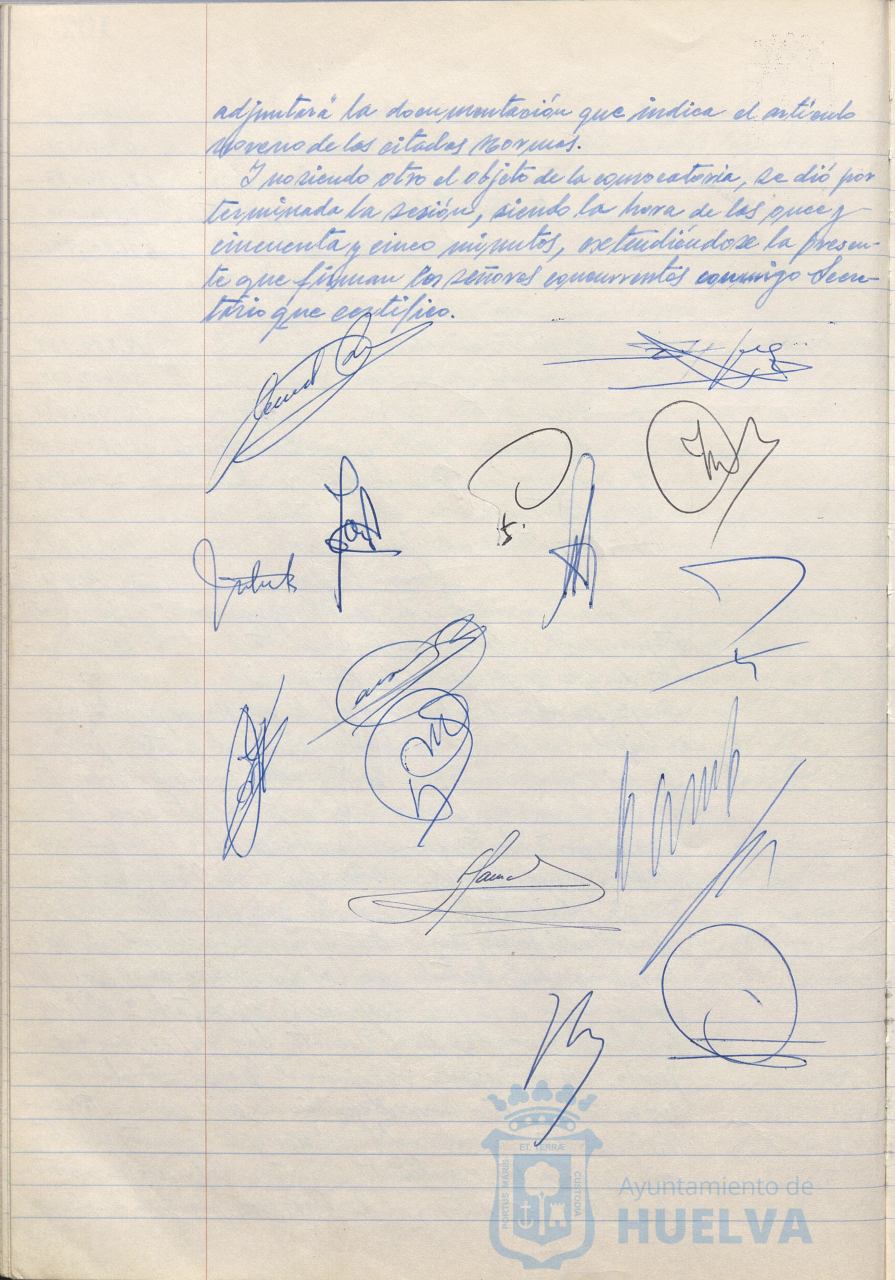 adjuntará la documentación que indica el artículo
noveno de las citadas Normas.
Y no siendo otro el objeto de la convocatoria, se dió por
terminada la sesión, siendo la hora de las y
cincuenta y cinco minutos, extendiéndose la presen-
te que firman los señores concurrentes conmigo Secre-
tario que certifico.
ET TERRÆ
PORTUS MARIS
CUSTODIA
Ayuntamiento de
HUELVA